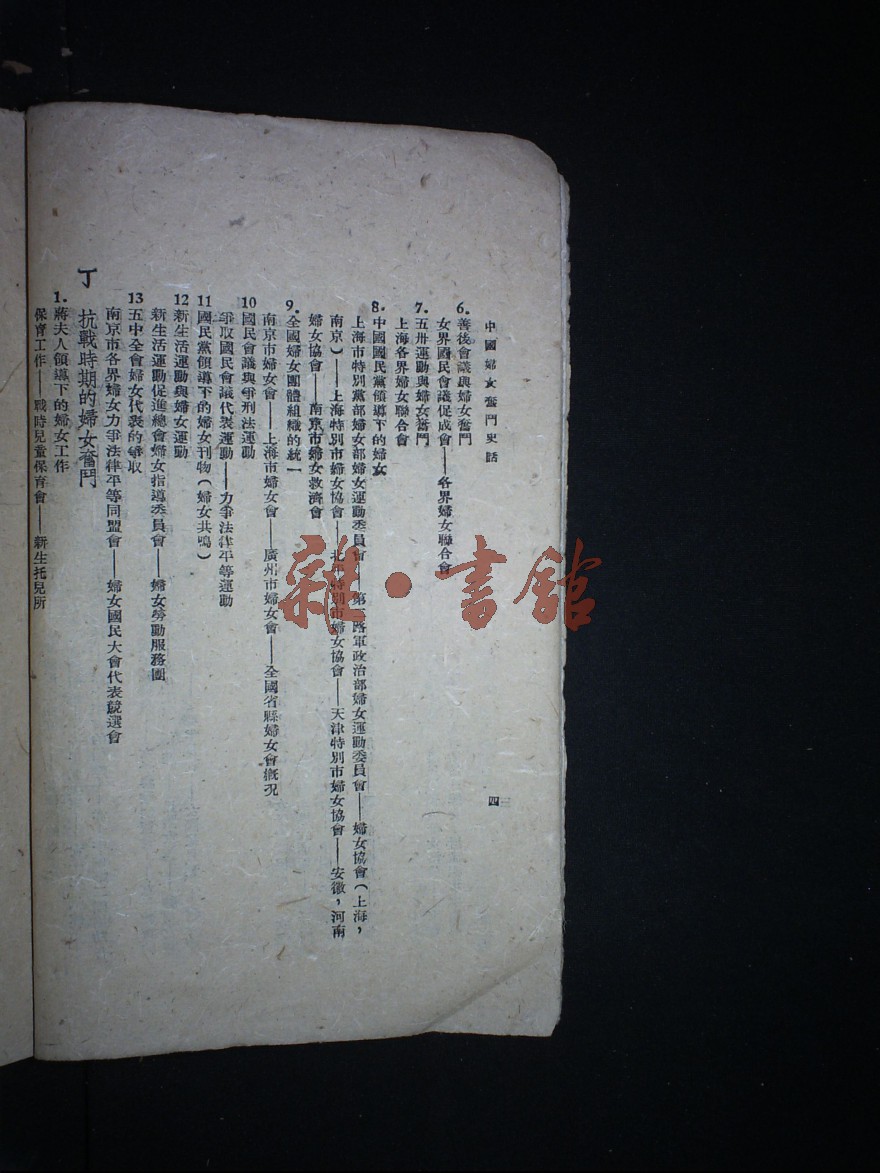 中國婦女奮鬥史話
四
6. 善後會議與婦女奮鬥
女界國民會議促成會——各界婦女聯合會
7. 五卅運動與婦女奮鬥
上海各界婦女聯合會
8. 中國國民黨領導下的婦女
上海市特別黨部婦女部婦女運動委員會 第 路軍政治部婦女運動委員會——婦女協會(上海,
南京)——上海特別市婦女協會——北平特別市婦女協會——天津特別市婦女協會——安徽,河南
婦女協會——南京市婦女救濟會
9. 全國婦女團體組織的統一
南京市婦女會——上海市婦女會——廣州市婦女會——全國省縣婦女會概況
10 國民會議與爭刑法運動
爭取國民會議代表運動——力爭法律平等運動
11 國民黨領導下的婦女刊物(婦女共鳴)
12 新生活運動與婦女運動
新生活運動促進總會婦女指導委員會——婦女勞動服務團
13 五中全會婦女代表的爭取
南京市各界婦女力爭法律平等同盟會——婦女國民大會代表競選會
丁 抗戰時期的婦女奮鬥
1. 蔣夫人領導下的婦女工作
保育工作——戰時兒童保育會——新生托兒所
雜·書館